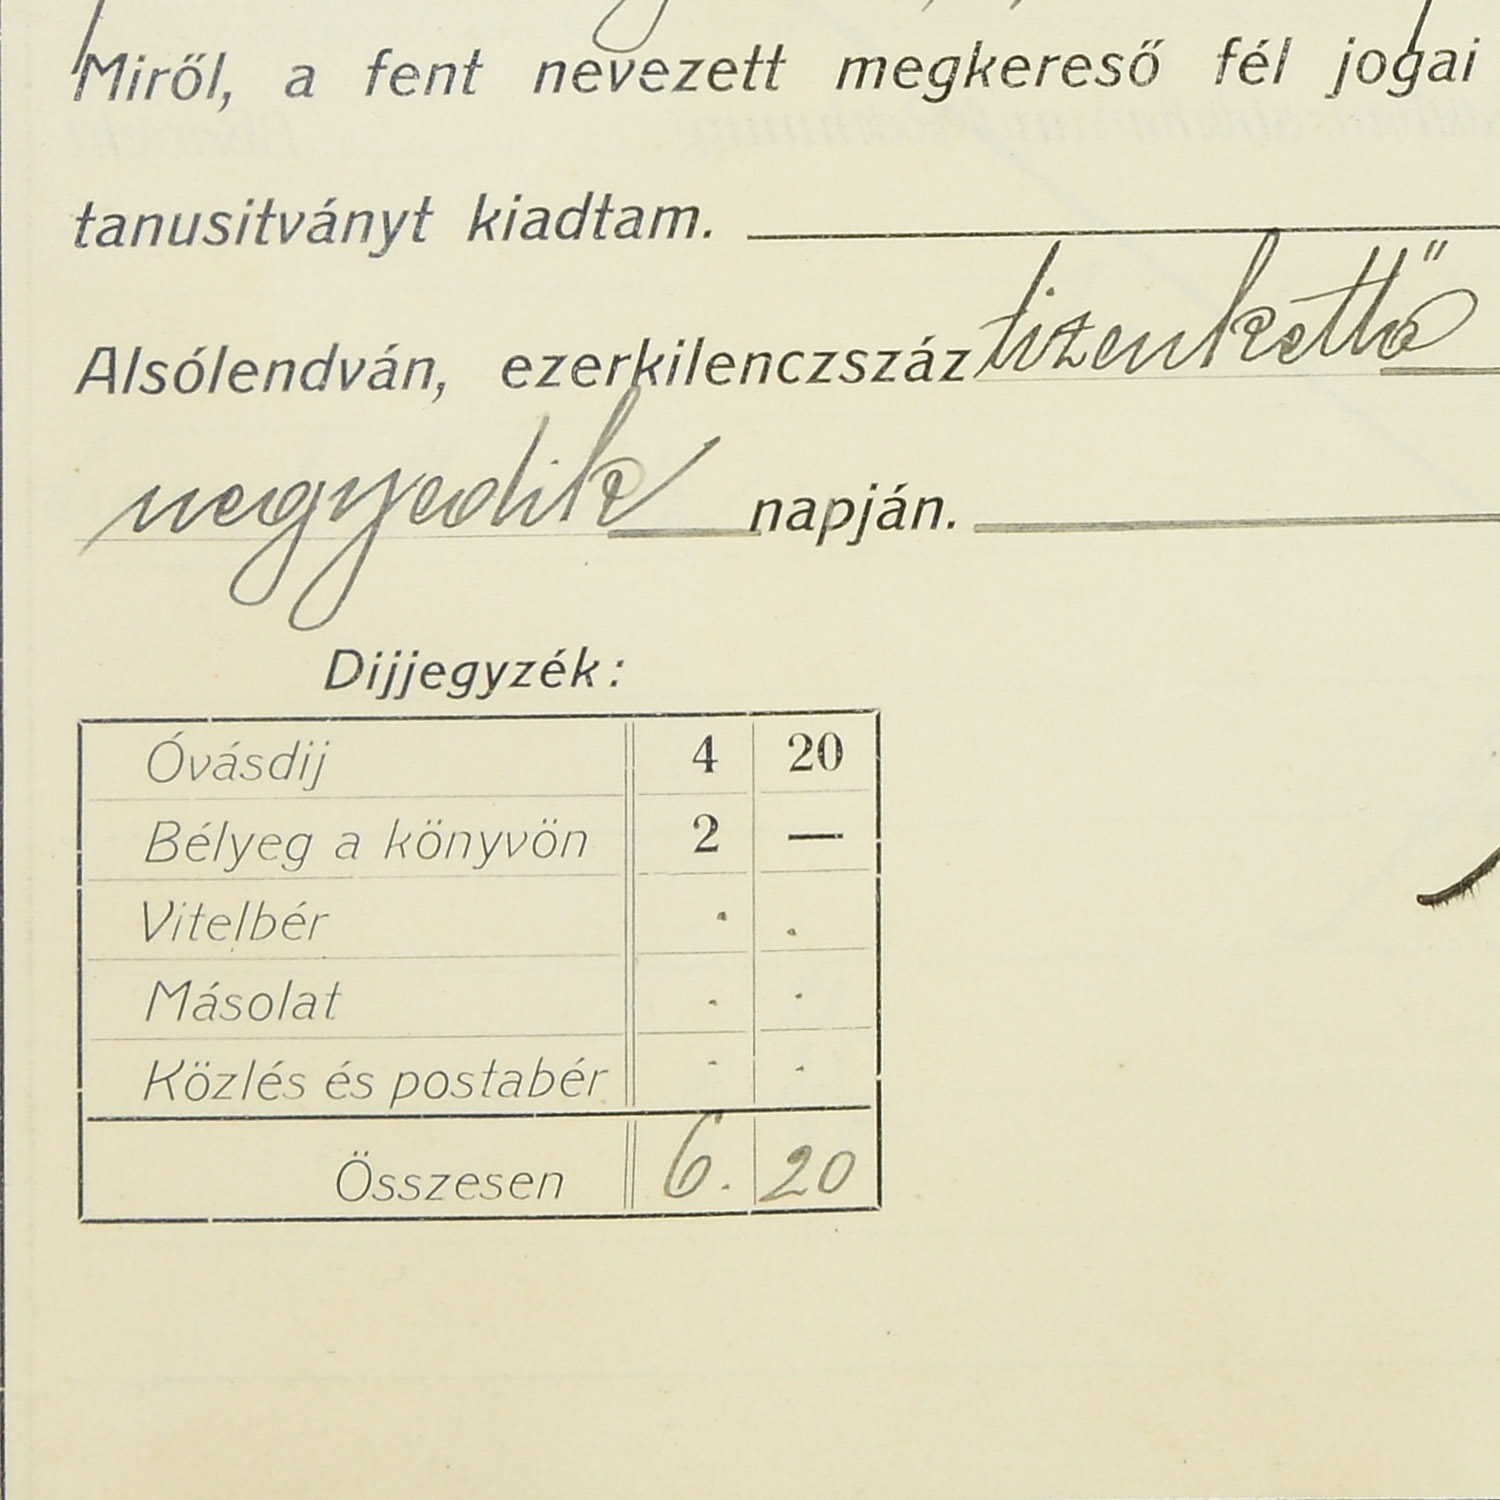 Miről, a fent nevezett megkereső fél jogai
tanusitványt kiadtam.
Alsólendván, ezerkilenczszáz tizenkettő
negyedik napján.
Dijjegyzék:
Óvásdij 4 20
Bélyeg a könyvön 2 —
Vitelbér . .
Másolat . .
Közlés és postabér . .
Összesen 6. 20